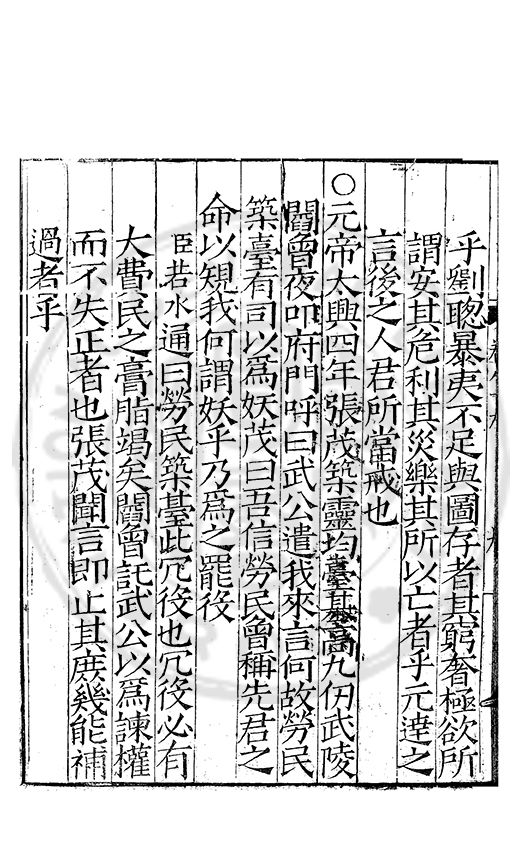 乎劉聰暴夷不足與圖存者其窮奢極欲所
謂安其危利其災樂其所以亡者乎元逹之
言後之人君所當戒也
○元帝太興四年張茂築靈均臺基高九仞武陵
閻曾夜叩府門呼曰武公遣我來言何故勞民
築臺有司以爲妖茂曰吾信勞民曾稱先君之
命以規我何謂妖乎乃爲之罷役
臣若水通曰勞民築臺此冗役也冗役必有
大費民之膏脂竭矣閻曾託武公以爲諫權
而不失正者也張茂聞言即止其庶幾能補
過者乎